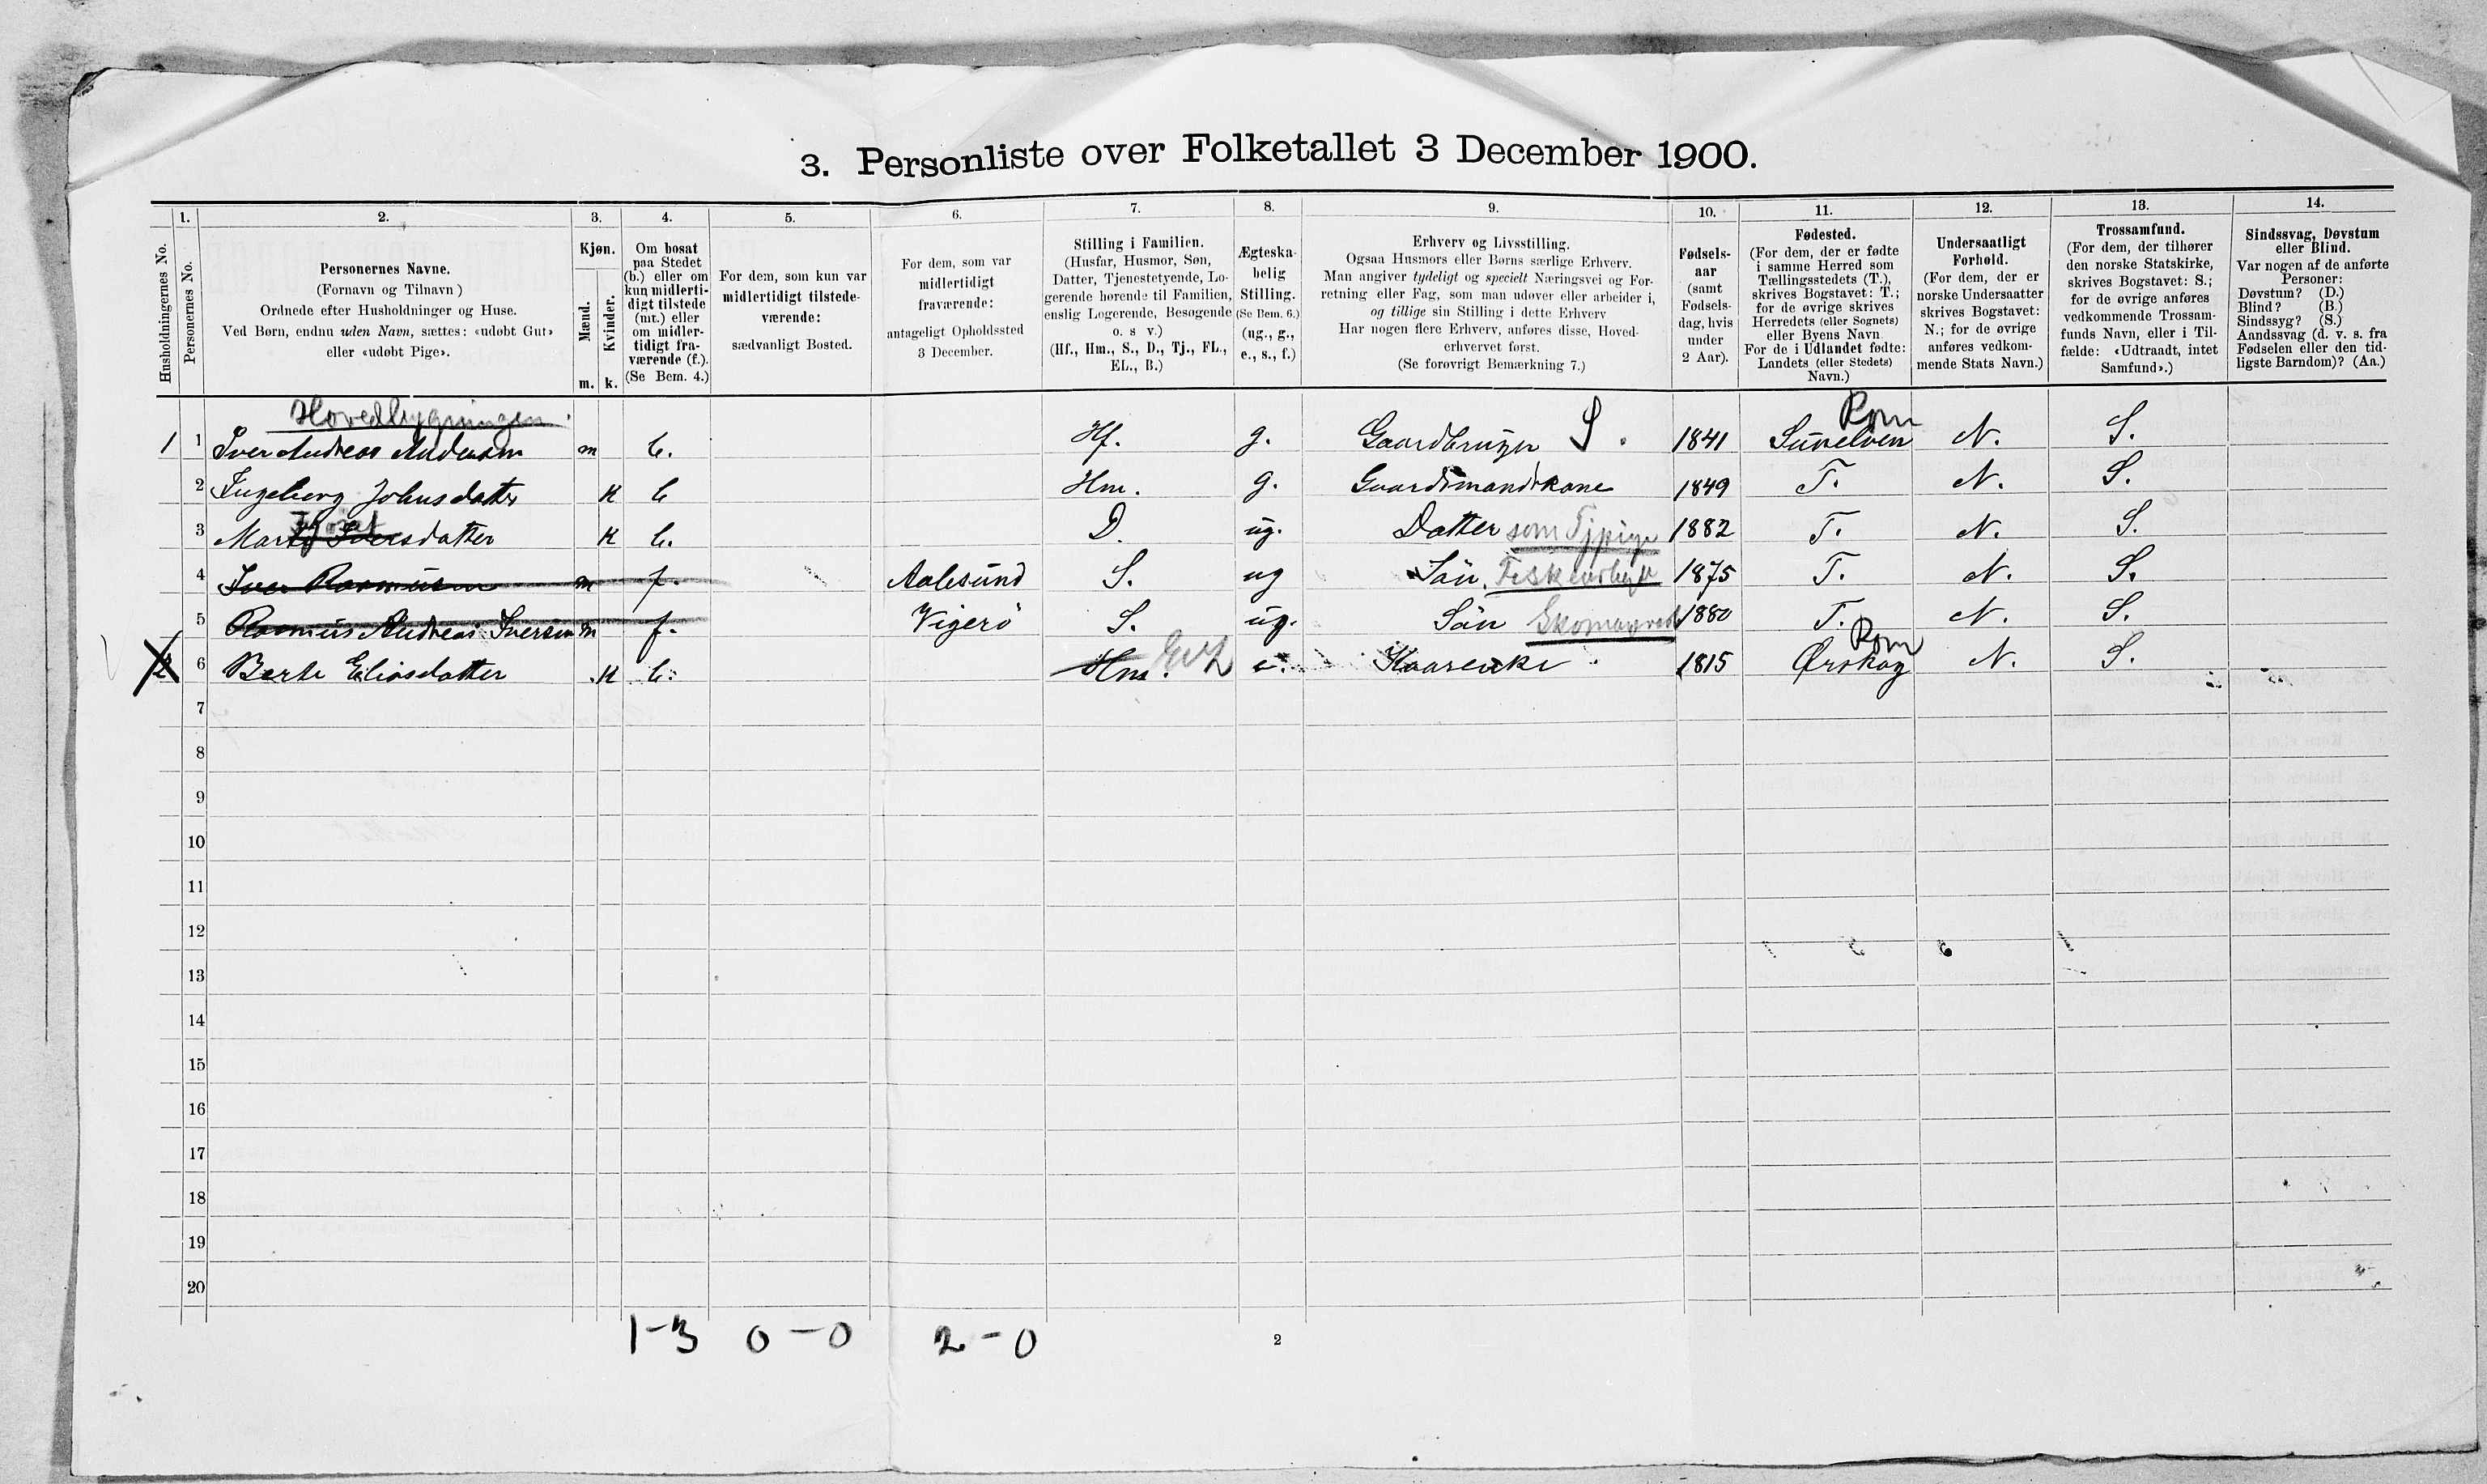 3. Personliste over Folketallet 3 December 1900.
1. 2. 3. 4. 5. 6. 7. 8. 9. 10. 11. 12. 13. 14.
Husholdningernes No.
Personernes No.
Personernes Navne.
(Fornavn og Tilnavn )
Ordnede efter Husholdninger og Huse.
Ved Børn, endnu uden Navn, sættes: «udøbt Gut»
eller «udøbt Pige».
Kjøn.
Mænd.
Kvinder.
m. k.
Om bosat
paa Stedet
(b.) eller om
kun midlerti-
digt tilstede
(mt.) eller
om midler-
tidigt fra-
værende (f.).
(Se Bem. 4.)
For dem, som kun var
midlertidigt tilstede-
værende:
sædvanligt Bosted.
For dem, som var
midlertidigt
fraværende:
antageligt Opholdssted
3 December.
Stilling i Familien.
(Husfar, Husmor, Søn,
Datter, Tjenestetyende, Lo-
gerende hørende til Familien,
enslig Logerende, Besøgende
o. s v.)
(Hf., Hm., S., D., Tj., FL.,
EL., B.)
Ægteska-
belig
Stilling.
(Se Bem. 6.)
(ug., g.,
e., s., f.)
Erhverv og Livsstilling.
Ogsaa Husmors eller Børns særlige Erhverv.
Man angiver tydeligt og specielt Næringsvei og For-
retning eller Fag, som man udøver eller arbeider i,
og tillige sin Stilling i dette Erhverv
Har nogen flere Erhverv, anføres disse, Hoved-
erhvervet først.
(Se forøvrigt Bemærkning 7.)
Fødsels-
aar
(samt
Fødsels-
dag, hvis
under
2 Aar).
Fødested.
(For dem, der er fødte
i samme Herred som
Tællingsstedets (T.),
skrives Bogstavet: T.;
for de øvrige skrives
Herredets (eller Sognets)
eller Byens Navn
For de i Udlandet fødte:
Landets (eller Stedets)
Navn.)
Undersaatligt
Forhold.
(For dem, der er
norske Undersaatter
skrives Bogstavet:
N.; for de øvrige
anføres vedkom-
mende Stats Navn.)
Trossamfund.
(For dem, der tilhører
den norske Statskirke,
skrives Bogstavet: S.;
for de øvrige anføres
vedkommende Trossam-
funds Navn, eller i Til-
fælde: «Udtraadt, intet
Samfund».)
Sindssvag, Døvstum
eller Blind.
Var nogen af de anførte
Personer:
Døvstum? (D.)
Blind? (B.)
Sindssyg? (S.)
Aandssvag (d. v. s. fra
Fødselen eller den tid-
ligste Barndom)? (Aa.)
Hovedbygningen. Rom
1 1 Iver Andreas Andersen m b. Hf. g. Gaardbruger S. 1841 Sunelven N. S.
2 Ingeborg Johnsdatter K b Hm. g. Gaardsmandskone 1849 T. N. S.
3 Iversdatter K b. D. ug. Datter som Tjpige 1882 T. N. S.
4 Iver Rasmus m f. Aalesund S. ug Sön. 1875 T. N. S.
5 Rasmus Andreas Iversen m f. Vigerö S. ug. Sön 1880 T. N. S.
Rom
2 6 Berte Eliasdatter K b. Hm. e. Kaarenke 1815 Ørskog N. S.
7
8
9
10
11
12
13
14
15
16
17
18
19
20
1-3 0-0 2-0 2